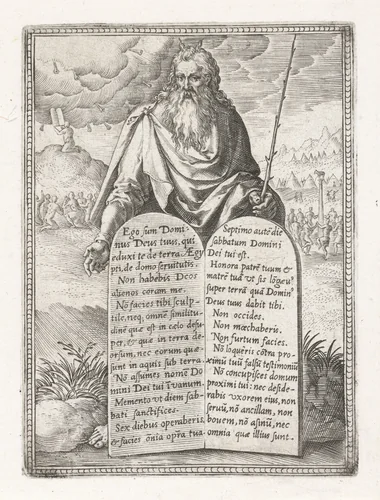 Ego sum Domi-
nus Deus tuus, qui
eduxi te de terra Ægy
pti, de domo seruitutis.
Non habebis Deos
alienos coram me.
Nō facies tibi sculp-
tile, neq. omnē similitu-
dinē quæ est in celo desu-
per, & quæ in terra de-
orsum, nec eorum quæ
sunt in aquis sub terra
Nō assumes nomē Do
mini Dei tui I vanum.
Memento vt diem sab-
bati sanctifices.
Sex diebus operaberis,
et facies ōnia opra tua.
Septimo autē die
sabbatum Domini
Dei tui est.
Honora patrē tuum &
matrē tuā vt sis lōgeuꝰ
super terrā quā Dominꝰ
Deus tuus dabit tibi.
Non occides.
Non mœchaberis.
Non furtum facies.
Nō loqueris cōtra pro-
ximū tuū falsū testimoniū
Nō concupisces domum
proximi tui: nec deside-
rabis vxorem eius, non
seruū, nō ancillam, non
bouem, nō asinū, nec
omnia quæ illius sunt.